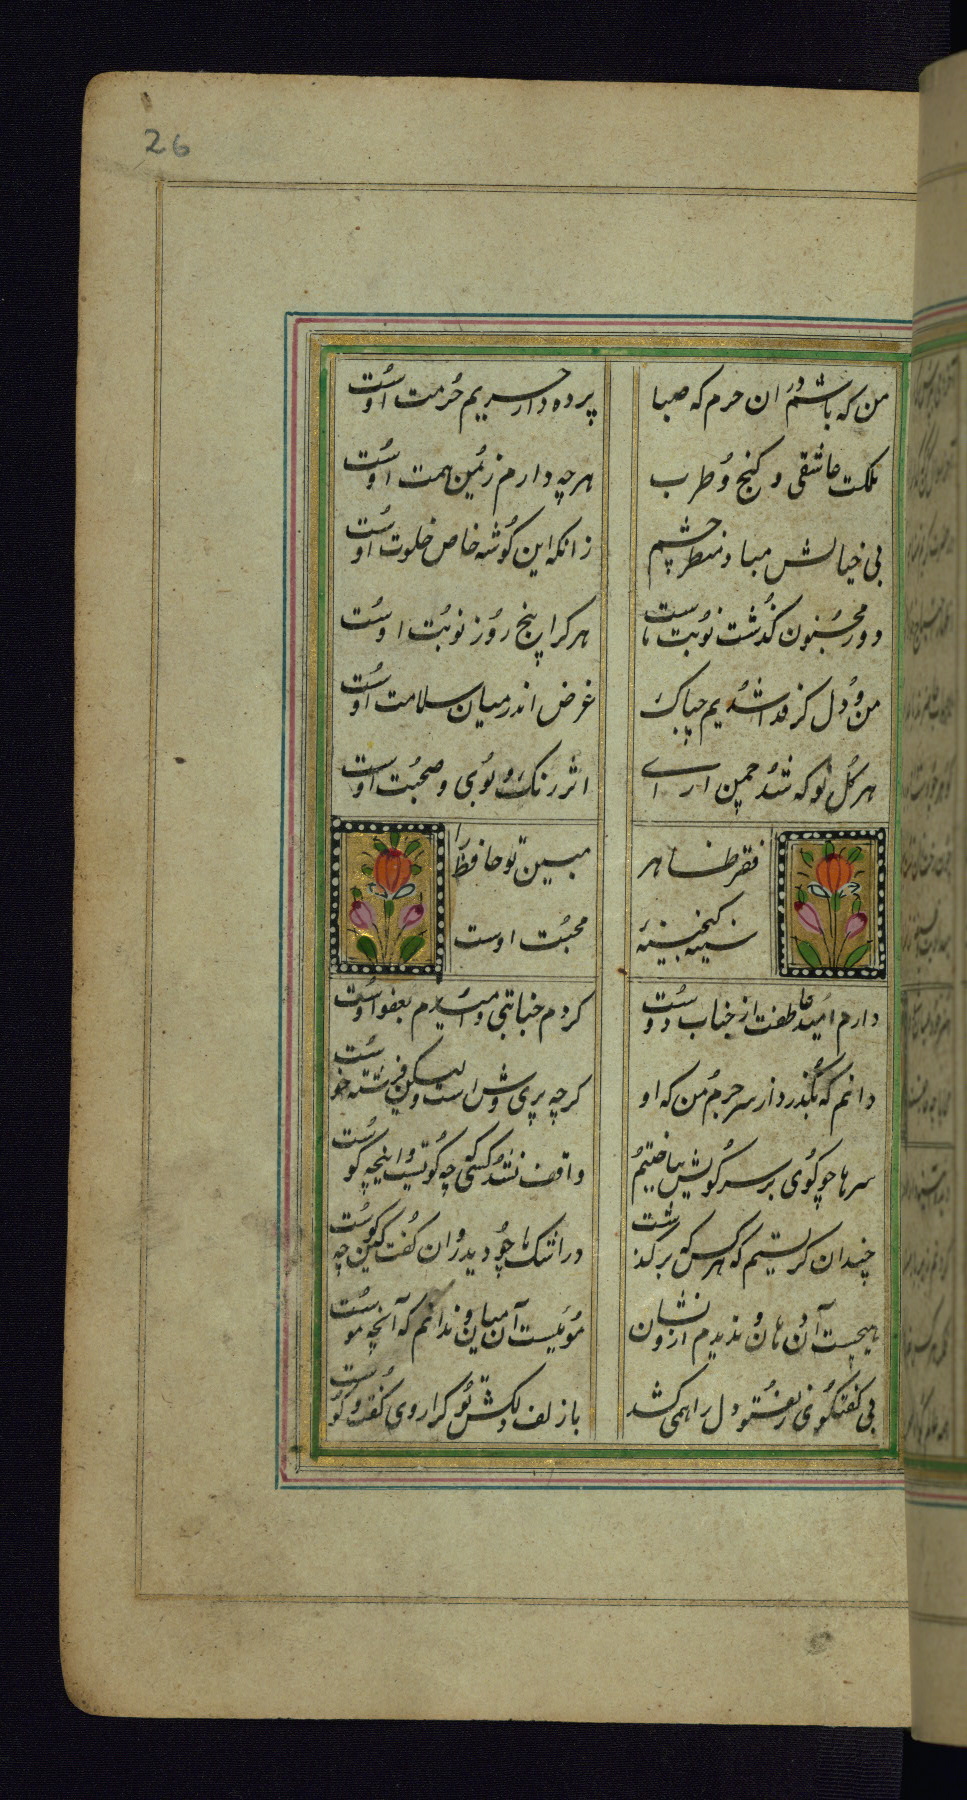 26
من که باشم دران حرم که صبا
پرده دار حریم حرمت اوست
ملکت عاشقی و کنج و طرب
هرچه دارم ز یمن همت اوست
بی خیالش مباد منظر چشم
زانکه این گوشه خاص خلوت اوست
دور مجنون گذشت نوبت ماست
هرکرا پنج روز نوبت اوست
من و دل گر فدا شدیم چه باک
غرض اندر میان سلامت اوست
هر گل نو که شد چمن ارای
اثر رنک و بوی و صحبت اوست
فقر ظاهر مبین تو حافظ را
سینه گنجینه محبت اوست
دارم امید عاطفت از جناب دوست
کردم خیانتی و امیدم بعفو اوست
دانم که بگذرد از سر جرم من که او
کرچه پری وش است ولیکن فرشته خوست
سرها چو کوی بر سر کویش بباختیم
واقف نشد کسی که چه کویست و اینچه کوست
چندان کریستیم که هر کس که برگذشت
در اشک ما چو دید روان گفت کین چه جوست
هیچست آن دهان و ندیدم ازو نشان
مویست آن میان و ندانم که آنچه موست
بی کفتکوی زلف تو دل را همی کشد
با زلف دلکش تو کرا روی گفت و گوست